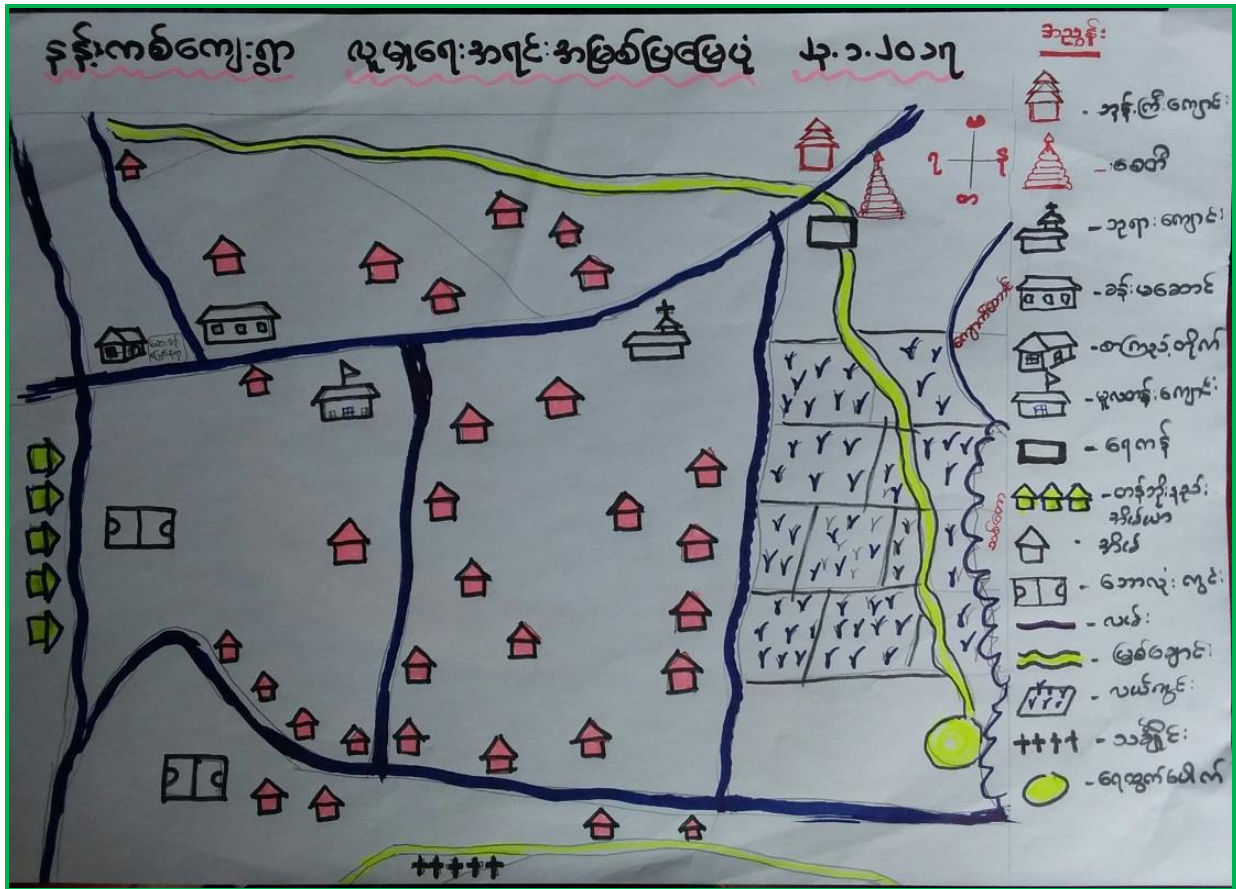 နန့်ကစ်ကျေးရွာ လူမှုရေးအရင်းအမြစ်ပြမြေပုံ ၂၃.၁.၂၀၁၇
အညွှန်း
- ဘုန်းကြီးကျောင်း
- စေတီ
- ဘုရားကျောင်း
- ခန်းမဆောင်
- စာကြည့်တိုက်
- မူလတန်းကျောင်း
- ရေကန်
- တန်ဘိုးနည်း
အိမ်ယာ
- အိမ်
- ဘောလုံးကွင်း
- လမ်း
- မြစ်ချောင်း
- လယ်ကွင်း
- သင်္ချိုင်း
- ရေထွက်ပေါက်
မ
ရ
န
တ